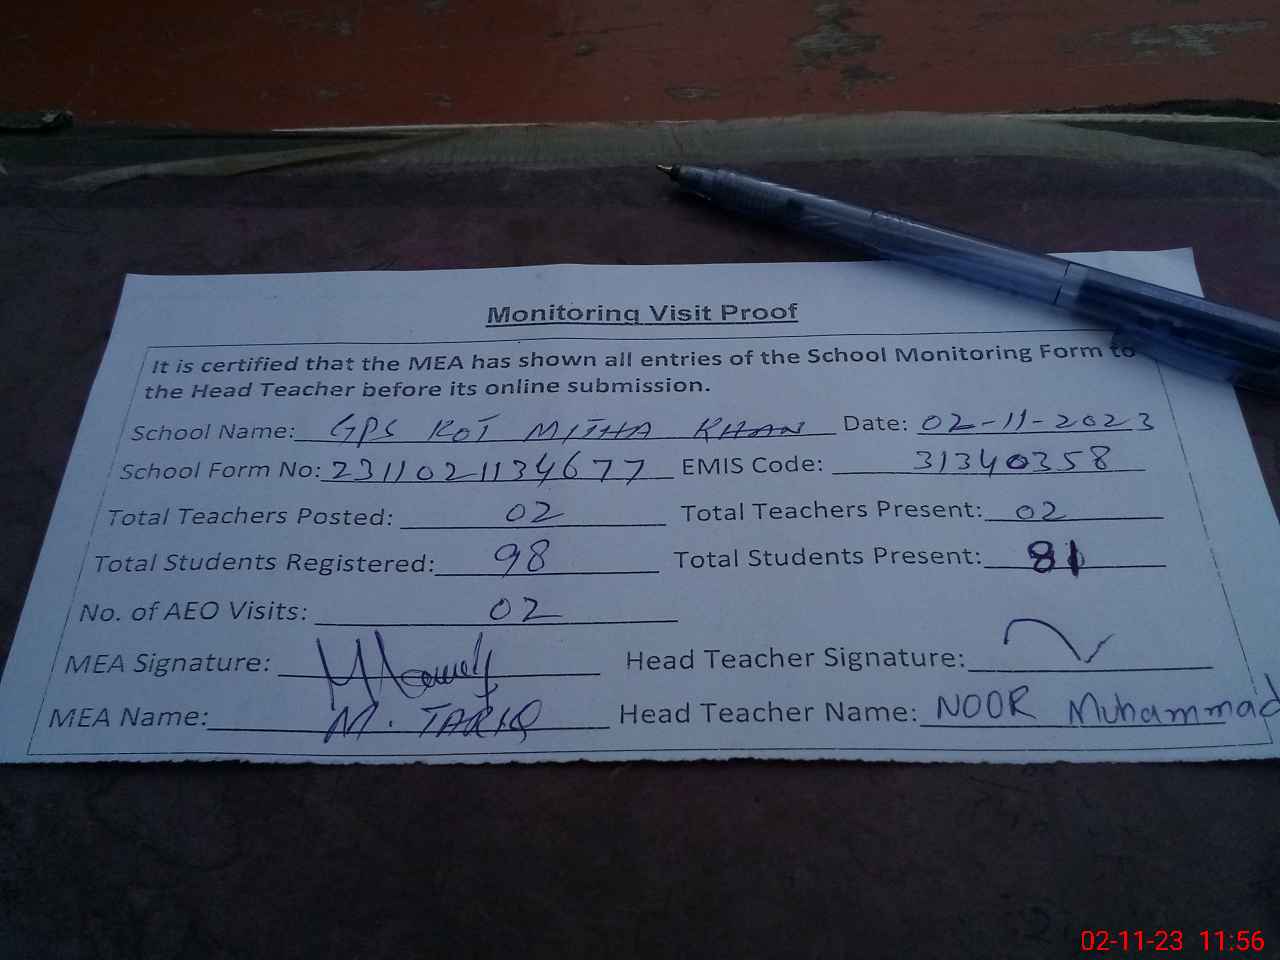 Monitoring Visit Proof
It is certified that the MEA has shown all entries of the School Monitoring Form to
the Head Teacher before its online submission.
School Name: GPS KOT MITHA KHAN Date: 02-11-2023
School Form No: 2311021134677 EMIS Code: 31340358
Total Teachers Posted: 02 Total Teachers Present: 02
Total Students Registered: 98 Total Students Present: 81
No. of AEO Visits: 02
MEA Signature: Head Teacher Signature:
MEA Name: M. TARIQ Head Teacher Name: NOOR Muhammad
02-11-23 11:56